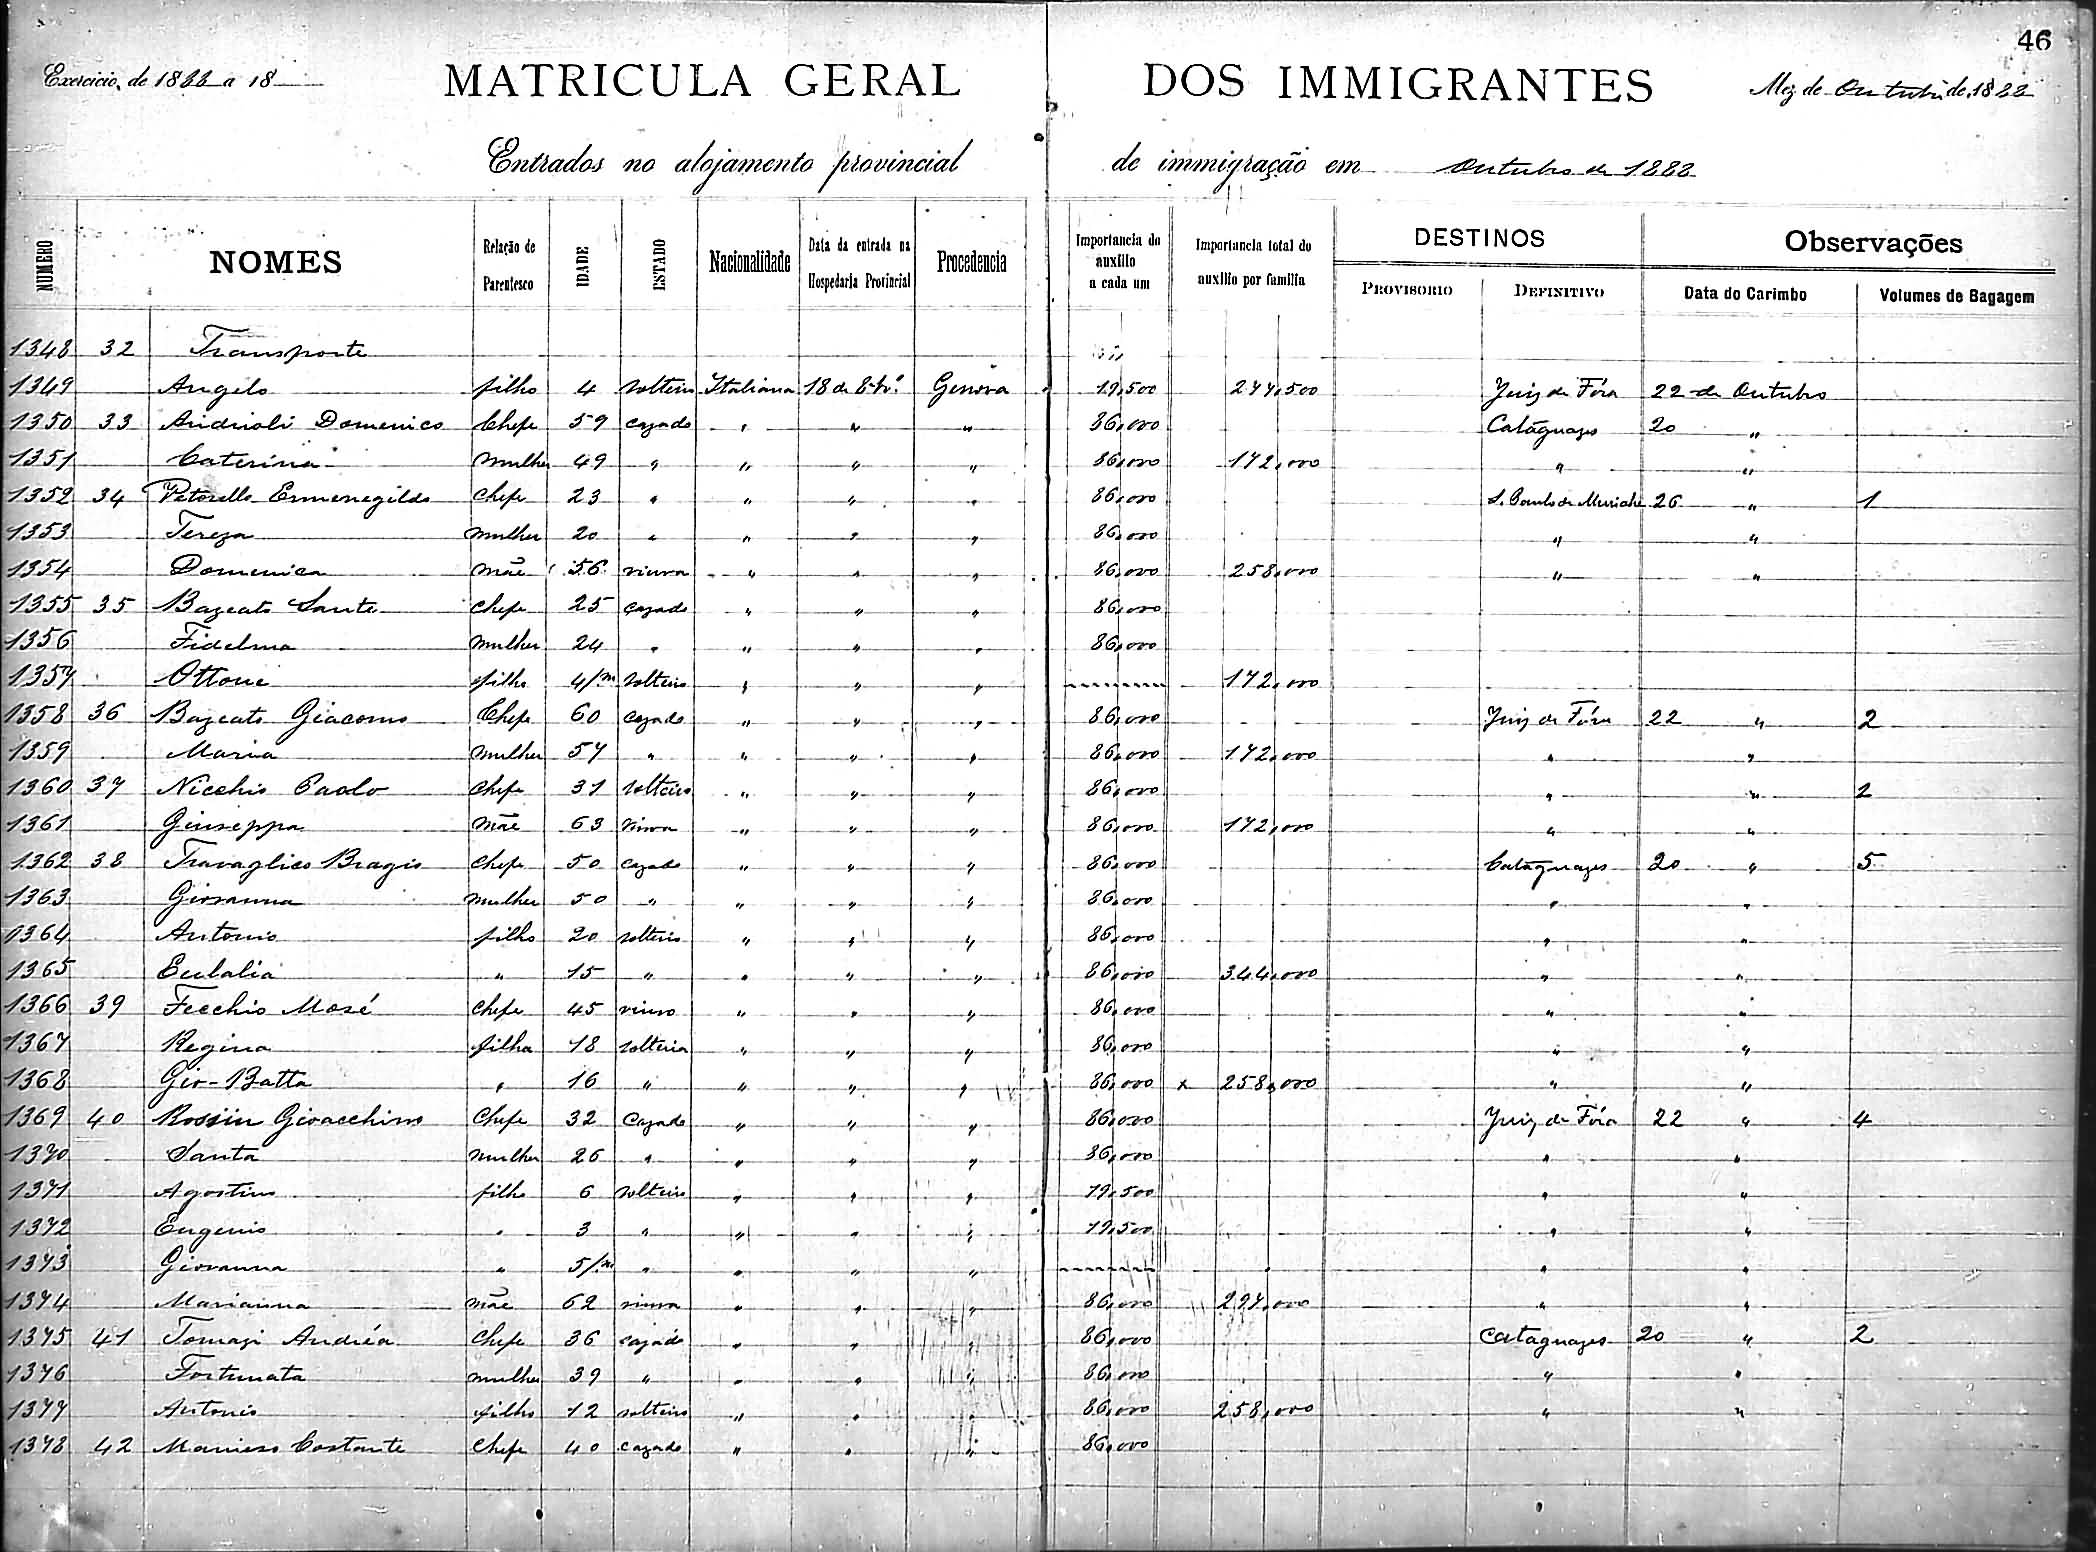 46
Exercicio, de 1888 a 18
MATRICULA GERAL DOS IMMIGRANTES
Mez de Outubro de 1888
Entrados no alojamento provincial de immigração em Outubro de 1888
NUMERO NOMES Relação de Parentesco IDADE ESTADO Nacionalidade Data da entrada na Hospedaria Provincial Procedencia Importancia do auxilio a cada um Importancia total do auxilio por familia DESTINOS PROVISORIO DEFINITIVO Observações Data do Carimbo Volumes de Bagagem
1348 32 Transporte
1349 Angelo filho 4 solteiro Italiana 18 de 8bro Genova 19,500 277,500 Juiz de Fóra 22 de Outubro
1350 33 Andrioli Domenico Chefe 59 cazado " " " 86,000 Cataguazes 20 "
1351 Caterina mulher 49 " " " " 86,000 172,000 " "
1352 34 Petorello Ermenegildo chefe 23 " " " " 86,000 S. Paulo de Muriahe 26 " 1
1353 Tereza mulher 20 " " " " 86,000 " "
1354 Domenica mãe 56 viuva " " " 86,000 258,000 " "
1355 35 Bazeato Sante chefe 25 cazado " " " 86,000
1356 Fidelma mulher 24 " " " " 86,000
1357 Ottone filho 4/m solteiro " " " 172,000
1358 36 Bazeato Giacomo Chefe 60 cazado " " " 86,000 Juiz de Fóra 22 " 2
1359 Maria mulher 57 " " " " 86,000 172,000 " "
1360 37 Nicchio Paolo chefe 31 solteiro " " " 86,000 " " 2
1361 Giuseppa mãe 63 viuva " " " 86,000 172,000 " "
1362 38 Travaglico Bragio chefe 50 cazado " " " 86,000 Cataguazes 20 " 5
1363 Giovanna mulher 50 " " " " 86,000 " "
1364 Antonio filho 20 solteiro " " " 86,000 " "
1365 Eulalia " 15 " " " " 86,000 344,000 " "
1366 39 Fecchio Mosé chefe 45 viuvo " " " 86,000 " "
1367 Regina filha 18 solteira " " " 86,000 " "
1368 Gio-Batta " 16 " " " " 86,000 x 258,000 " "
1369 40 Rossin Gioacchino chefe 32 cazado " " " 86,000 Juiz de Fóra 22 " 4
1370 Santa mulher 26 " " " " 86,000 " "
1371 Agostino filho 6 solteiro " " " 19,500 " "
1372 Eugenio " 3 " " " " 19,500 " "
1373 Giovanna " 5/m " " " " " "
1374 Marianna mãe 62 viuva " " " 86,000 297,000 " "
1375 41 Tomazi Andréa chefe 36 cazado " " " 86,000 Cataguazes 20 " 2
1376 Fortunata mulher 39 " " " " 86,000 " "
1377 Antonio filho 12 solteiro " " " 86,000 258,000 " "
1378 42 Maniero Costante chefe 40 cazado " " " 86,000